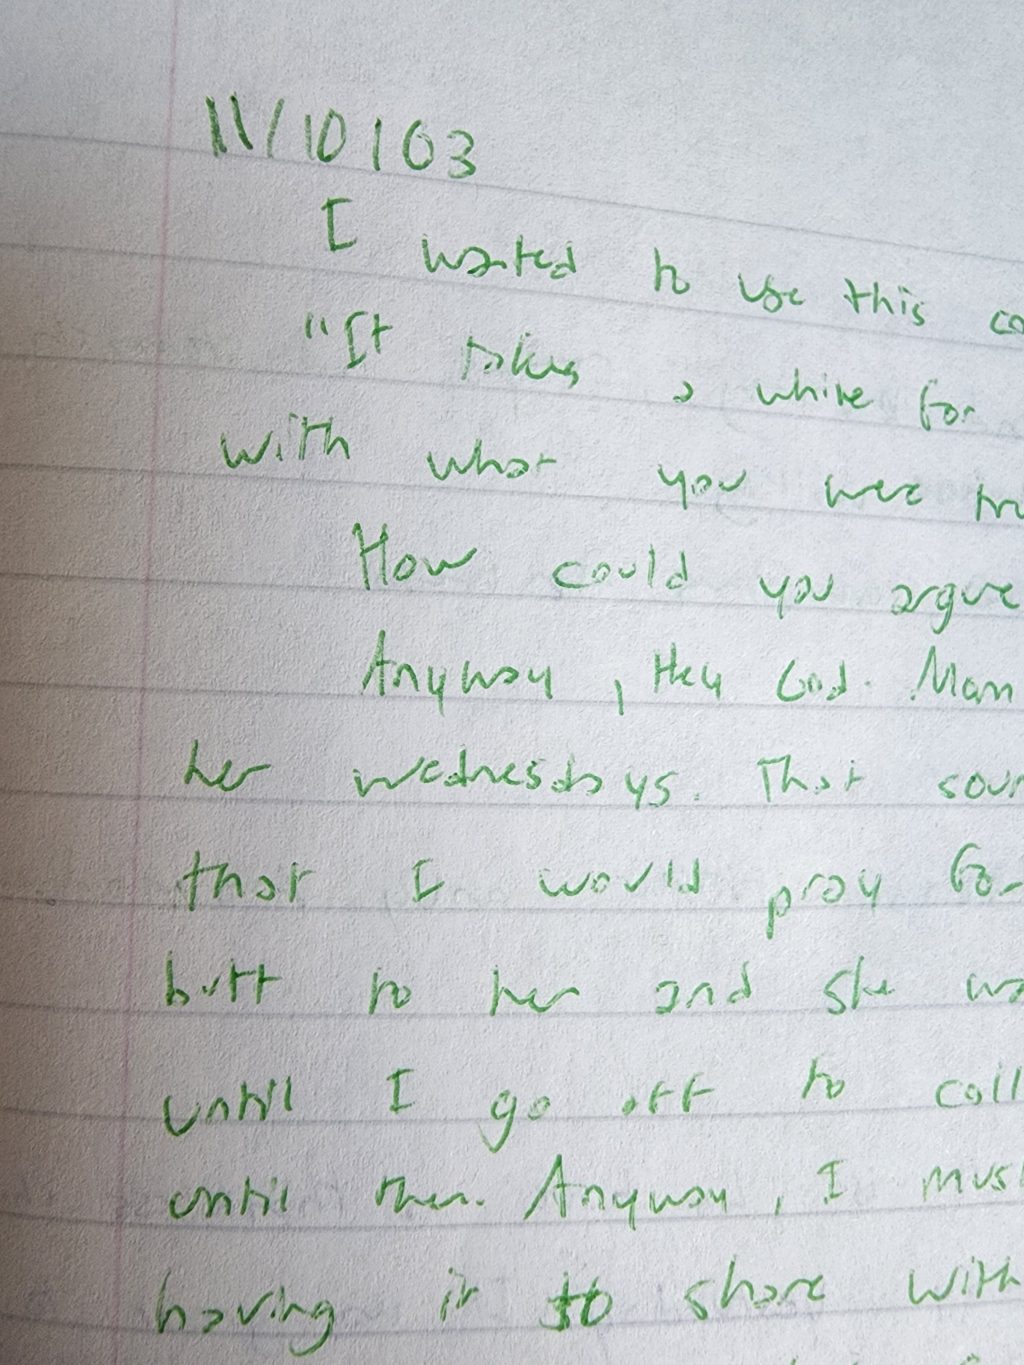 11/10/03
I wanted to use this co
"It takes a while for
with what you were tru
How could you argue
Anyway, Hey God. Mam
her wednesdays. That sour
that I would pray for
butt to her and she wa
until I go off to coll
until then. Anyway, I mus
having it to share with